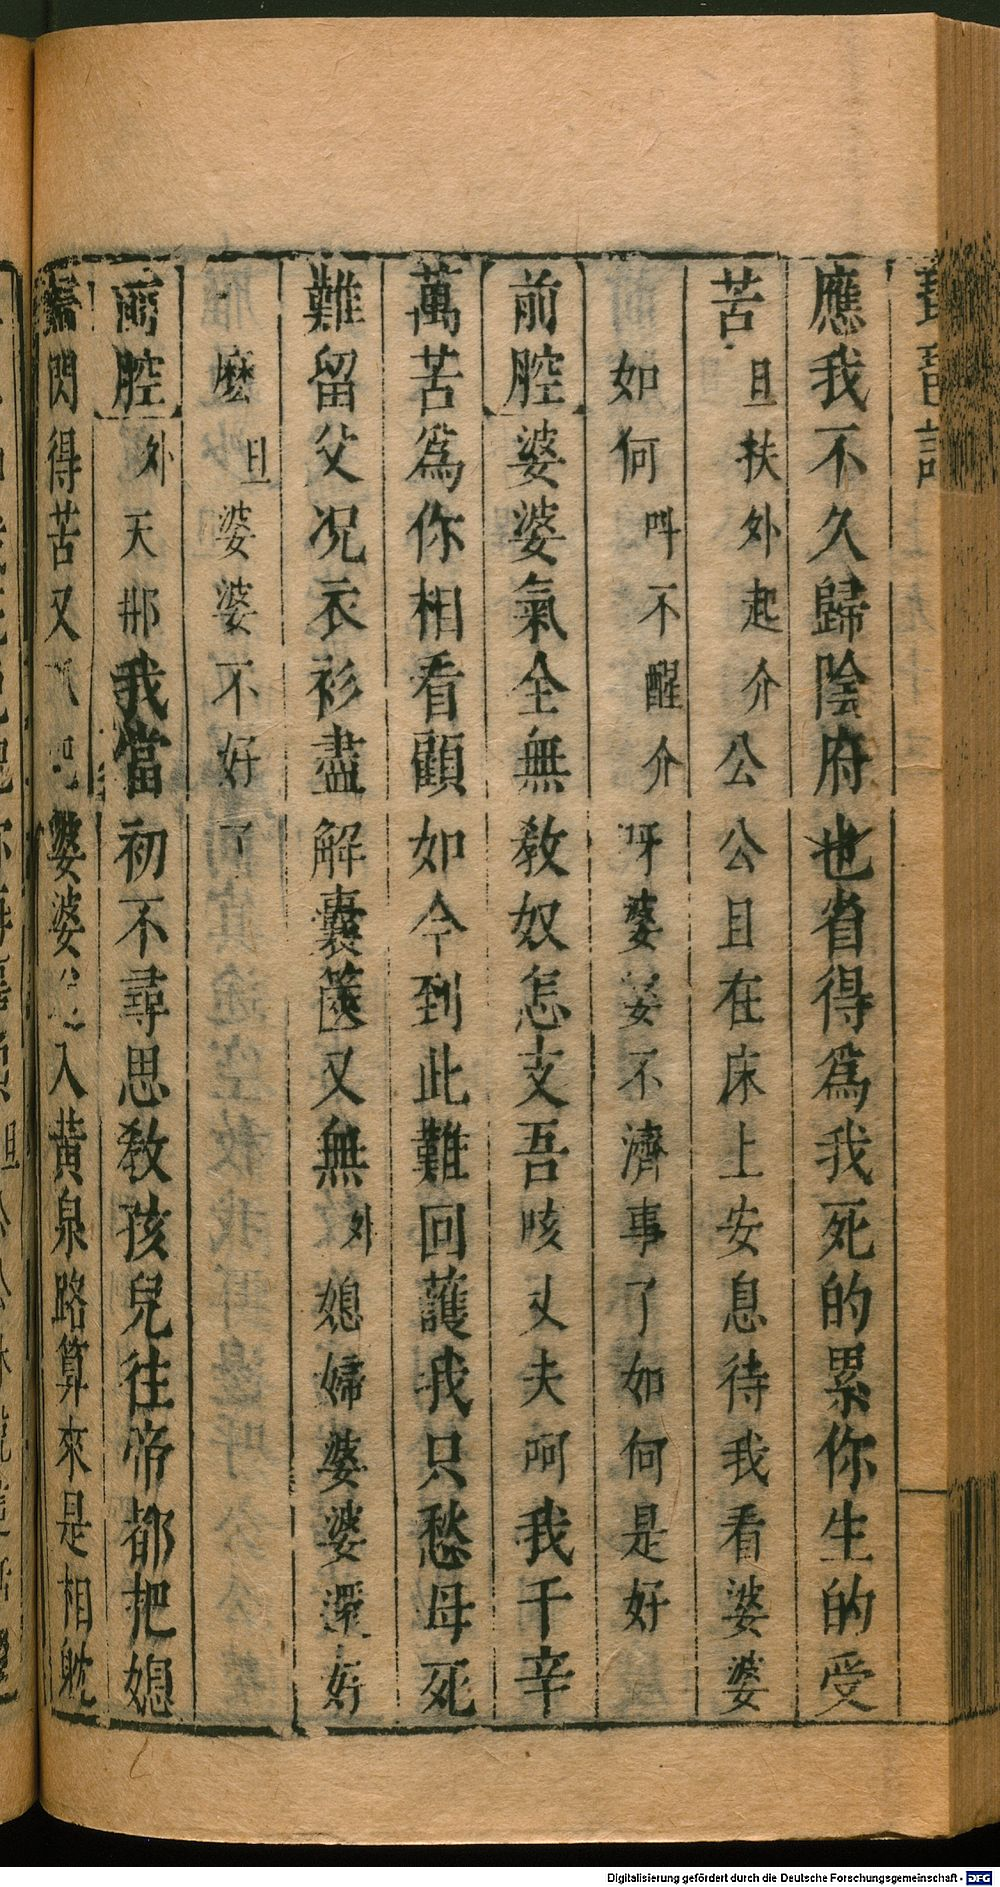 琶記
應我不久歸陰府也省得爲我死的累你生的受
苦旦扶外起介公公且在床上安息待我看婆婆
如何叫不醒介呀婆婆不濟事了如何是好
前腔婆婆氣全無教奴怎支吾咳丈夫呵我千辛
萬苦爲你相看顧如今到此難回護我只愁母死
難留父况衣衫盡解囊篋又無外媳婦婆婆還好
麽旦婆婆不好了
前腔外天那我當初不尋思教孩兒往帝都把媳
閃得苦又婆婆入黃泉路算來是相躭
Digitalisierung gefördert durch die Deutsche Forschungsgemeinschaft - DFG